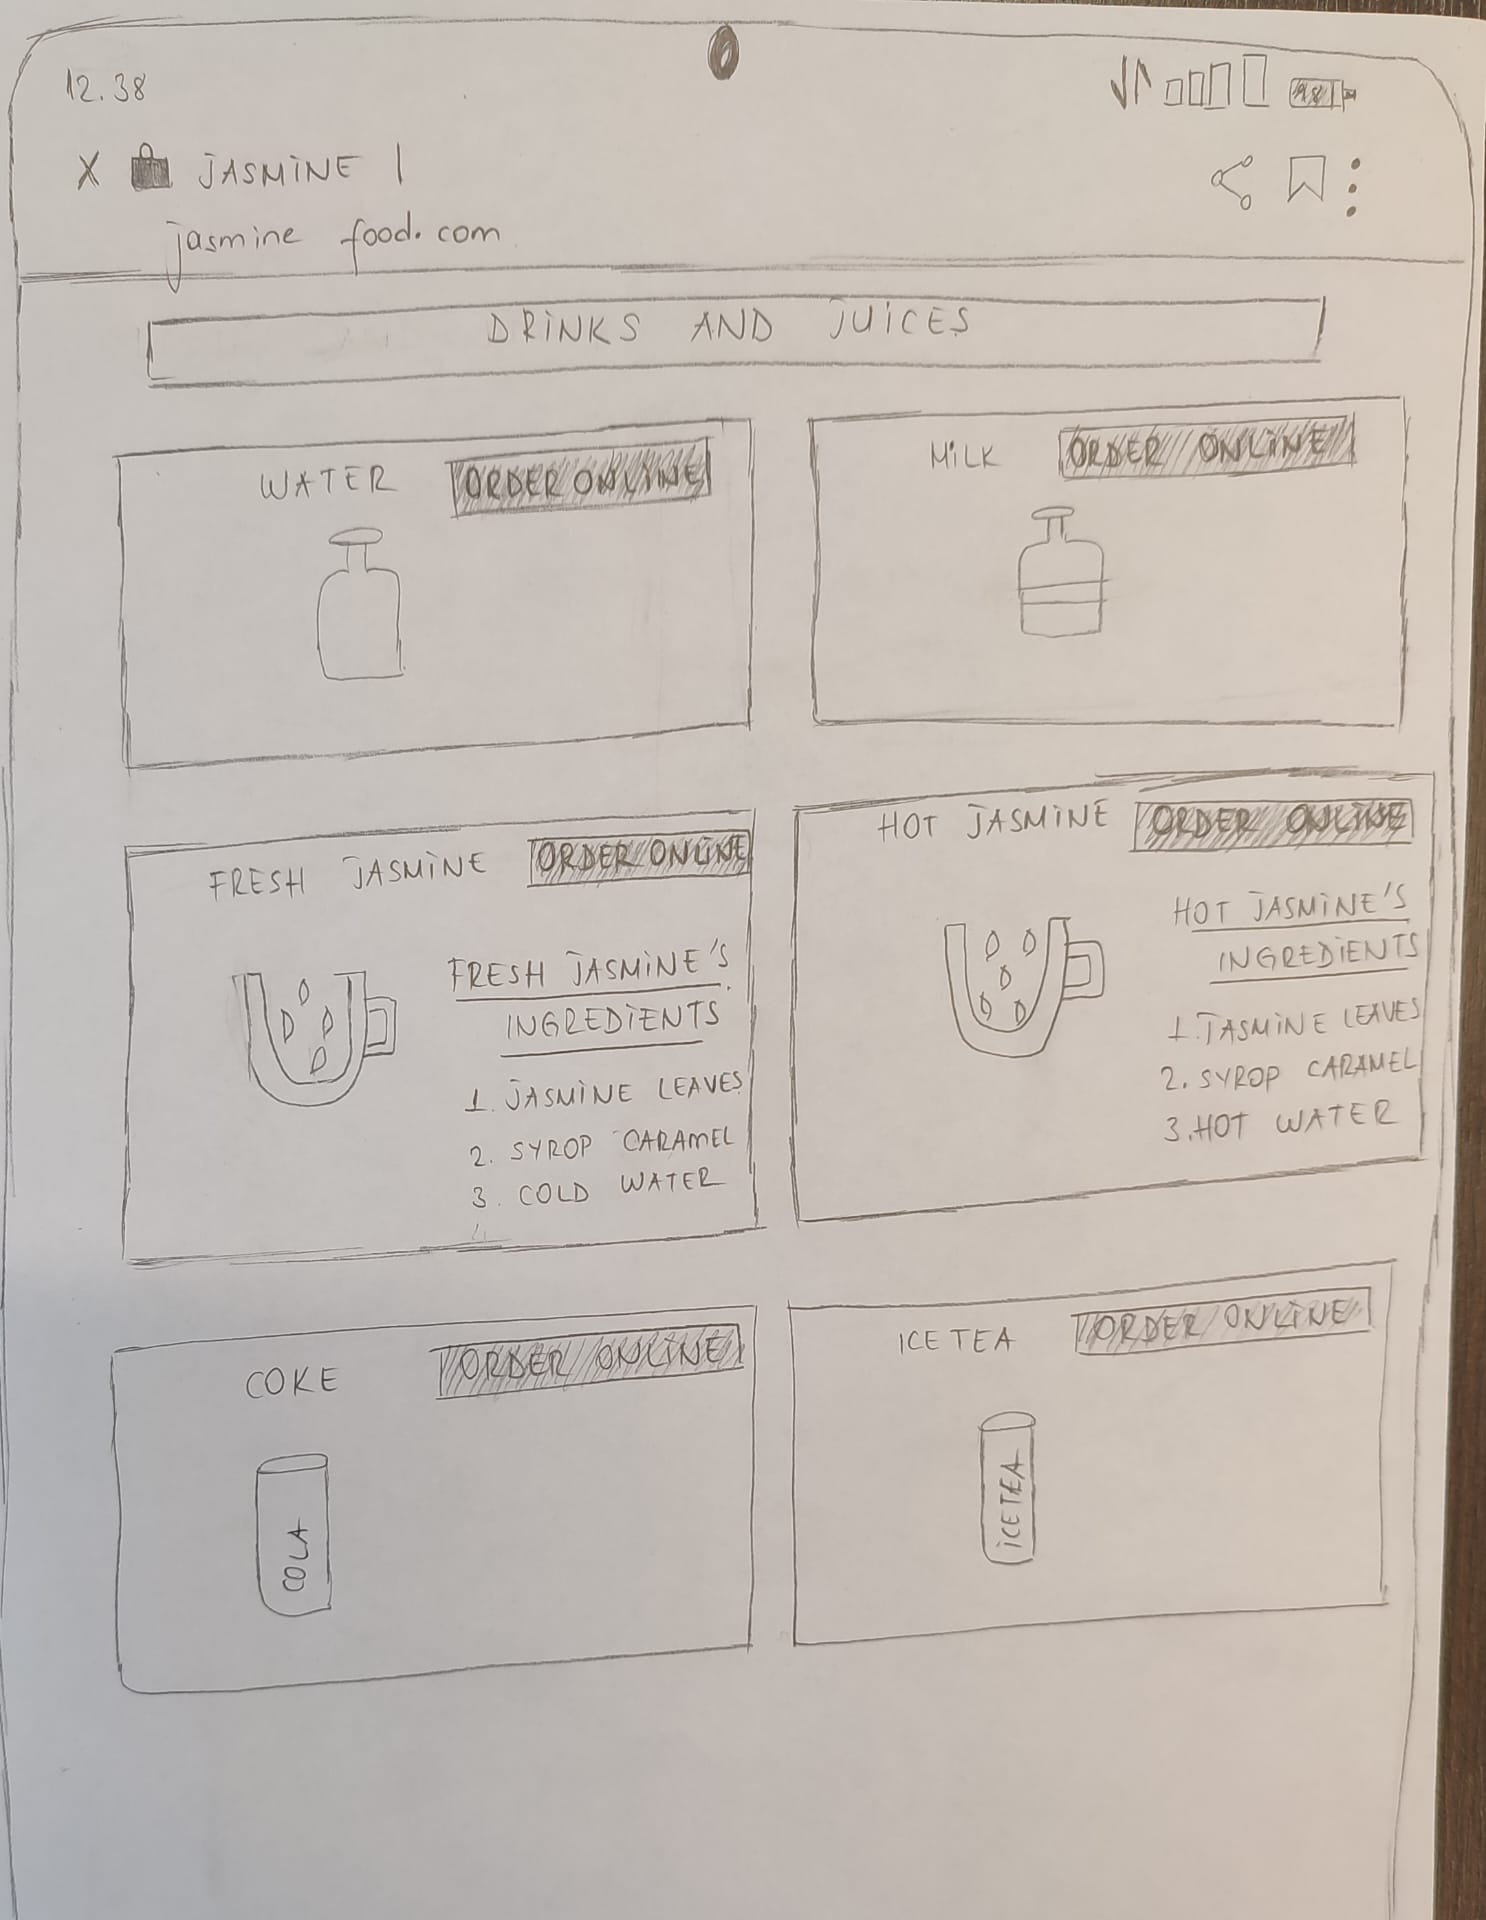 12.38
98
X JASMINE |
jasmine food.com
DRINKS AND JUICES
WATER ORDER ONLINE
MILK ORDER ONLINE
FRESH JASMINE ORDER ONLINE
FRESH JASMINE'S
INGREDIENTS
1. JASMINE LEAVES
2. SYROP CARAMEL
3. COLD WATER
HOT JASMINE ORDER ONLINE
HOT JASMINE'S
INGREDIENTS
1. JASMINE LEAVES
2. SYROP CARAMEL
3. HOT WATER
COKE ORDER ONLINE
COLA
ICE TEA ORDER ONLINE
ICE TEA